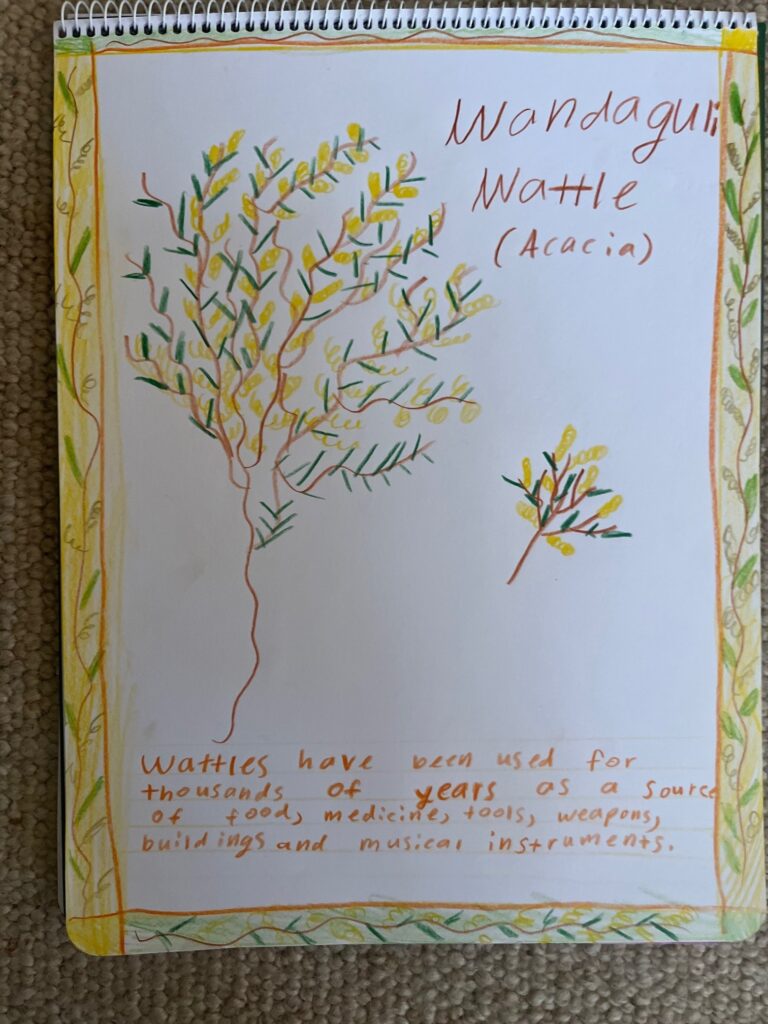 Wandaguli
Wattle
(Acacia)
Wattles have been used for
thousands of years as a source
of food, medicine, tools, weapons,
buildings and musical instruments.